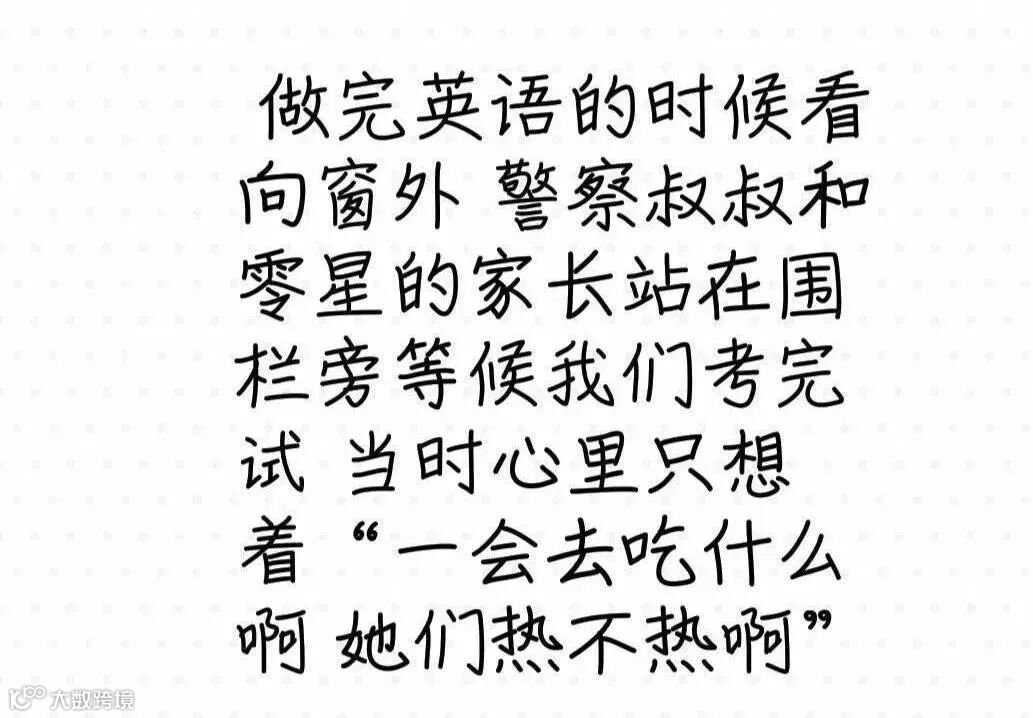 做完英语的时候看
向窗外 警察叔叔和
零星的家长站在围
栏旁等候我们考完
试 当时心里只想
着“一会去吃什么
啊 她们热不热啊”
大数跨境